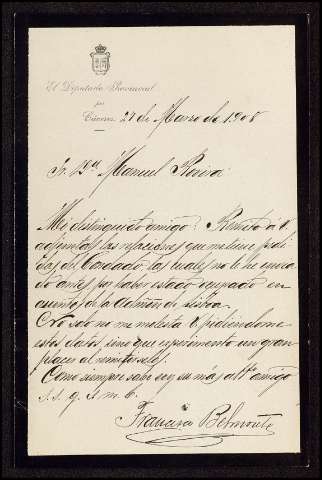 El Diputado Provincial
por
Cáceres
27 de Marzo de 1908
Sr. Dn. Manuel
Mi distinguido amigo: Remito á V.
adjuntas las relaciones que me tiene pedi-
das del Condado las cuales no le he envia-
do antes por haber estado ocupado en
asuntos de la
No solo no me molesta V. pidiendome
estos datos sino que experimento un gran
placer al remitirselos.
Como siempre sabe soy su más att.º amigo
s. s. q. s. m. b.
Francisco Belmonte